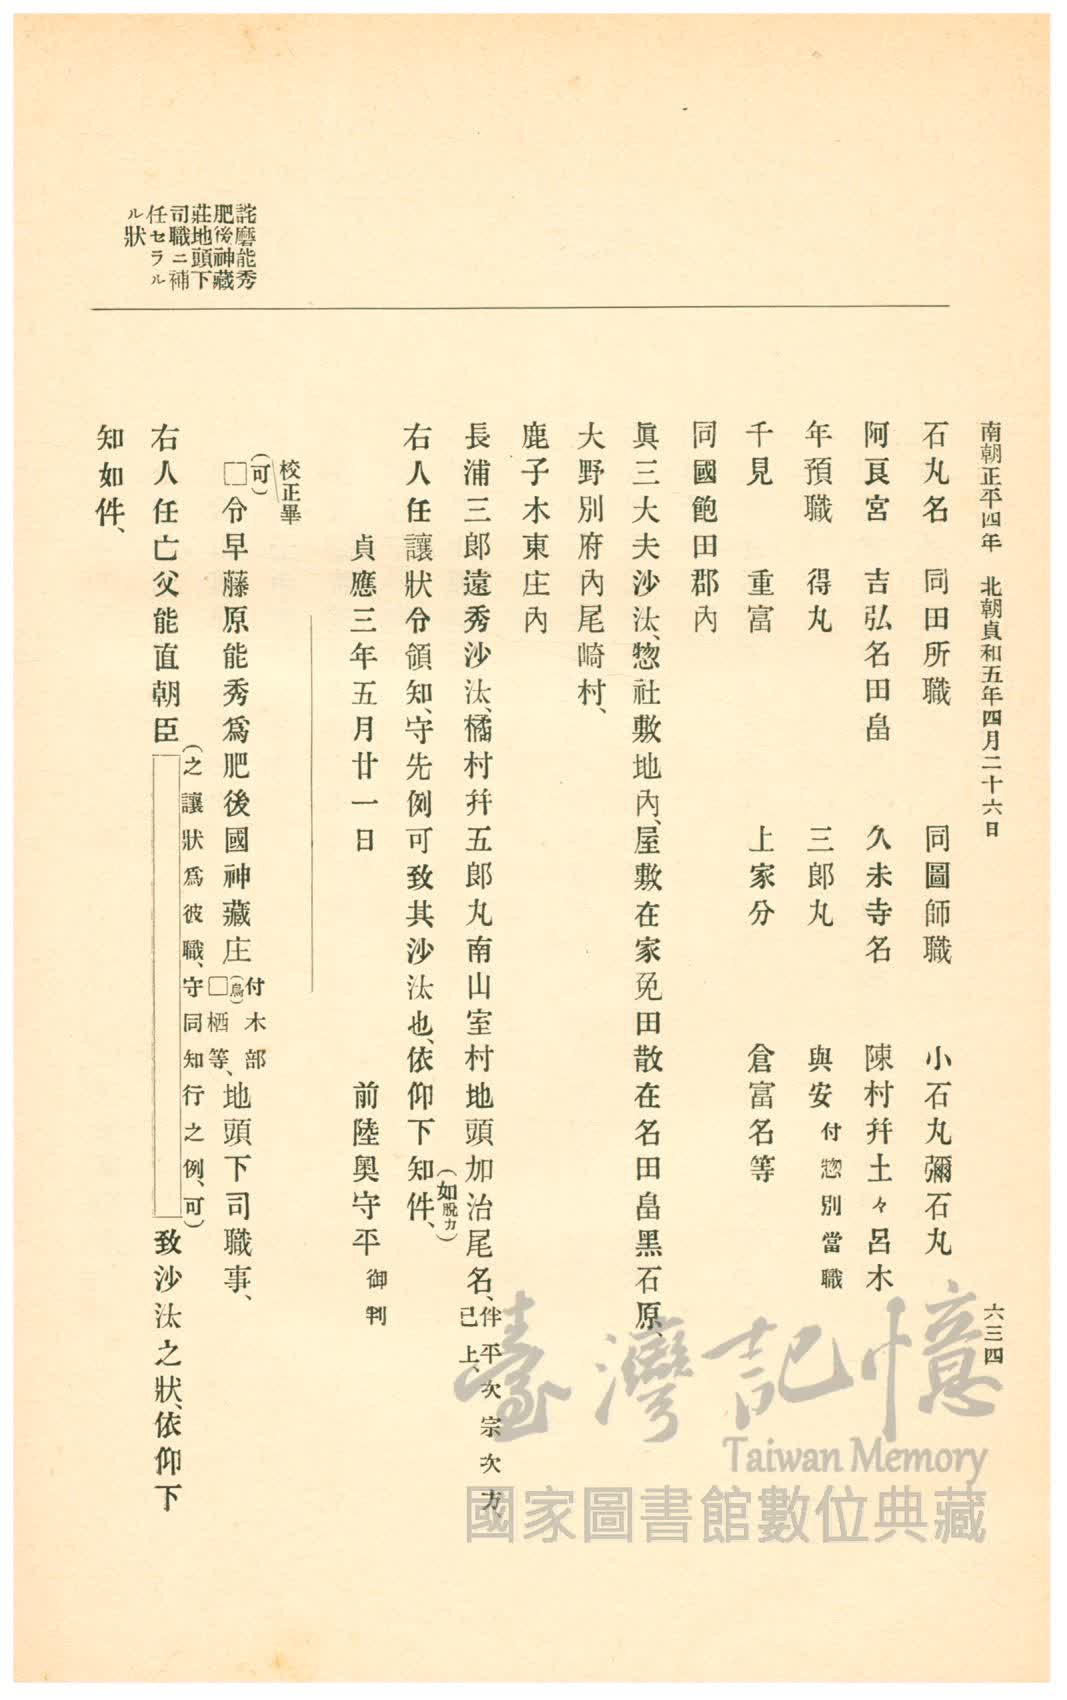 南朝正平四年　北朝貞和五年四月二十六日
六三四
石丸名　同田所職　同圖師職　小石丸彌石丸
阿良宮　吉弘名田畠　久未寺名　陳村幷土々呂木
年預職　得丸　三郎丸　與安付惣別當職
千見　重富　上家分　倉富名等
同國飽田郡內
眞三大夫沙汰、惣社敷地內、屋敷在家免田散在名田畠黑石原、
大野別府內尾崎村、
鹿子木東庄內
長浦三郎遠秀沙汰、橘村幷五郎丸南山室村地頭加治尾名、伴平次宗次方、已上、
右人任讓狀令領知、守先例可致其沙汰也、依仰下知件、
(如脫カ)
貞應三年五月廿一日
前陸奧守平御判
校正畢
(可)
□令早藤原能秀爲肥後國神藏庄付木部□(鳥)栖等、地頭下司職事、
右人任亡父能直朝臣(之讓狀爲彼職、守同知行之例、可)致沙汰之狀、依仰下
知如件、
詫磨能秀
肥後神藏
莊地頭下
司職ニ補
任セラル
ル狀
臺灣記憶
Taiwan Memory
國家圖書館數位典藏